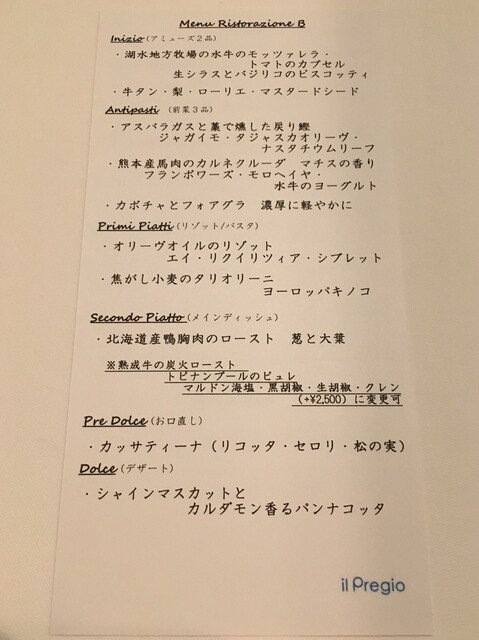 Menu Ristorazione B
Inizio (アミューズ2品)
・湖水地方牧場の水牛のモッツァレラ・
トマトのカプセル
生シラスとバジリコのビスコッティ
・牛タン・梨・ローリエ・マスタードシード
Antipasti (前菜3品)
・アスパラガスと藁で燻した戻り鰹
ジャガイモ・タジャスカオリーヴ・
ナスタチウムリーフ
・熊本産馬肉のカルネクルーダ マチスの香り
フランボワーズ・モロヘイヤ・
水牛のヨーグルト
・カボチャとフォアグラ 濃厚に軽やかに
Primi Piatti (リゾット/パスタ)
・オリーヴオイルのリゾット
エイ・リクイリツィア・シブレット
・焦がし小麦のタリオリーニ
ヨーロッパキノコ
Secondo Piatto (メインディッシュ)
・北海道産鴨胸肉のロースト 葱と大葉
※熟成牛の炭火ロースト
トピナンブールのピュレ
マルドン海塩・黒胡椒・生胡椒・クレン
(+¥2,500) に変更可
Pre Dolce (お口直し)
・カッサティーナ (リコッタ・セロリ・松の実)
Dolce (デザート)
・シャインマスカットと
カルダモン香るパンナコッタ
il Pregio